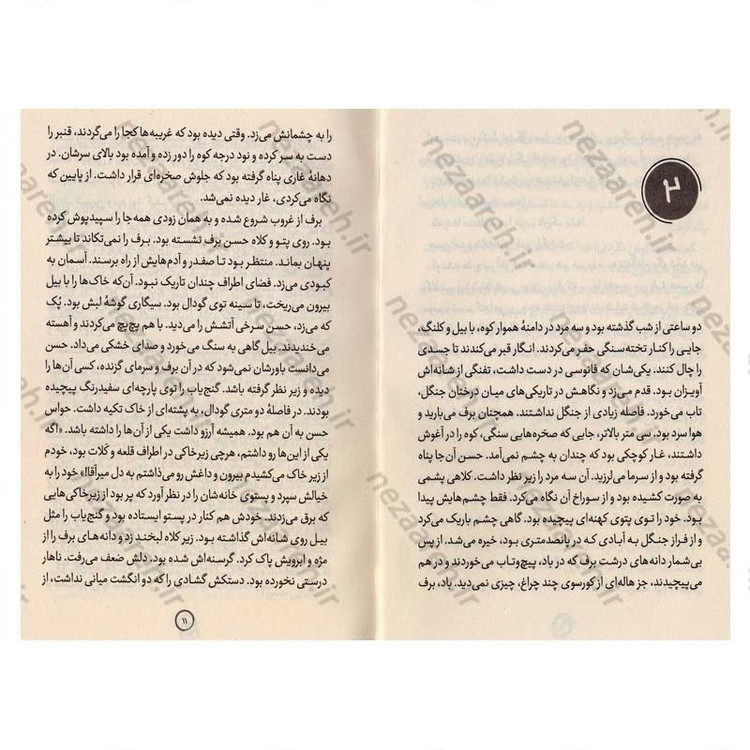 ۲
دو ساعتی از شب گذشته بود و سه مرد در دامنهٔ هموار کوه، با بیل و کلنگ،
جایی را کنار تخته‌سنگی حفر می‌کردند. انگار قبر می‌کندند تا جسدی
را چال کنند. یکی‌شان که فانوسی در دست داشت، تفنگی از شانه‌اش
آویزان بود. قدم می‌زد و نگاهش در تاریکی‌های میان درختان جنگل،
تاب می‌خورد. فاصله زیادی از جنگل نداشتند. همچنان برف می‌بارید و
هوا سرد بود. سی متر بالاتر، جایی که صخره‌هایی سنگی، کوه را در آغوش
داشتند، غار کوچکی بود که چندان به چشم نمی‌آمد. حسن آن‌جا پناه
گرفته بود و از سرما می‌لرزید. آن سه مرد را زیر نظر داشت. کلاهی پشمی
به صورت کشیده بود و از سوراخ آن نگاه می‌کرد. فقط چشم‌هایش پیدا
بود. خود را توی پتوی کهنه‌ای پیچیده بود. گاهی چشم باریک می‌کرد
و از فراز جنگل به آبادی که در پانصدمتری بود، خیره می‌شد. از پس
بی‌شمار دانه‌های درشت برف که در باد، پیچ‌وتاب می‌خوردند و در هم
می‌پیچیدند، جز هاله‌ای از کورسوی چند چراغ، چیزی نمی‌دید. باد، برف
را به چشمانش می‌زد. وقتی دیده بود که غریبه‌ها کجا را می‌گردند، قنبر را
دست به سر کرده و نود درجه کوه را دور زده و آمده بود بالای سرشان. در
دهانهٔ غاری پناه گرفته بود که جلوش صخره‌ای قرار داشت. از پایین که
نگاه می‌کردی، غار دیده نمی‌شد.
برف از غروب شروع شده و به همان زودی همه‌جا را سپیدپوش کرده
بود. روی پتو و کلاه حسن برف نشسته بود. برف را نمی‌تکاند تا بیشتر
پنهان بماند. منتظر بود تا صفدر و آدم‌هایش از راه برسند. آسمان به
کبودی می‌زد. فضای اطراف چندان تاریک نبود. آن‌که خاک‌ها را با بیل
بیرون می‌ریخت، تا سینه توی گودال بود. سیگاری گوشهٔ لبش بود. پُک
که می‌زد، حسن سرخی آتشش را می‌دید. با هم پچ‌پچ می‌کردند و آهسته
می‌خندیدند. بیل گاهی به سنگ می‌خورد و صدای خشکی می‌داد. حسن
می‌دانست باورشان نمی‌شود که در آن برف و سرمای گزنده، کسی آن‌ها را
دیده و زیر نظر گرفته باشد. گنج‌یاب را توی پارچه‌ای سفیدرنگ پیچیده
بودند. در فاصلهٔ دو متری گودال، به پشته‌ای از خاک تکیه داشت. حواس
حسن به آن هم بود. همیشه آرزو داشت یکی از آن‌ها را داشته باشد. «اگه
یکی از این‌ها رو داشتم، هرچی زیرخاکی در اطراف قلعه و کَلات بود، خودم
از زیر خاک می‌کشیدم بیرون و داغش رو می‌ذاشتم به دل میرآقا!» خود را به
خیالش سپرد و پستوی خانه‌شان را در نظر آورد که پر بود از زیرخاکی‌هایی
که برق می‌زدند. خودش هم کنار در پستو ایستاده بود و گنج‌یاب را مثل
بیل روی شانه‌اش گذاشته بود. زیر کلاه لبخند زد و دانه‌های برف را از
مژه و ابرویش پاک کرد. گرسنه‌اش شده بود. دلش ضعف می‌رفت. ناهار
درستی نخورده بود. دستکش گشادی را که دو انگشت میانی نداشت، از
۱۱
nezaareh.ir